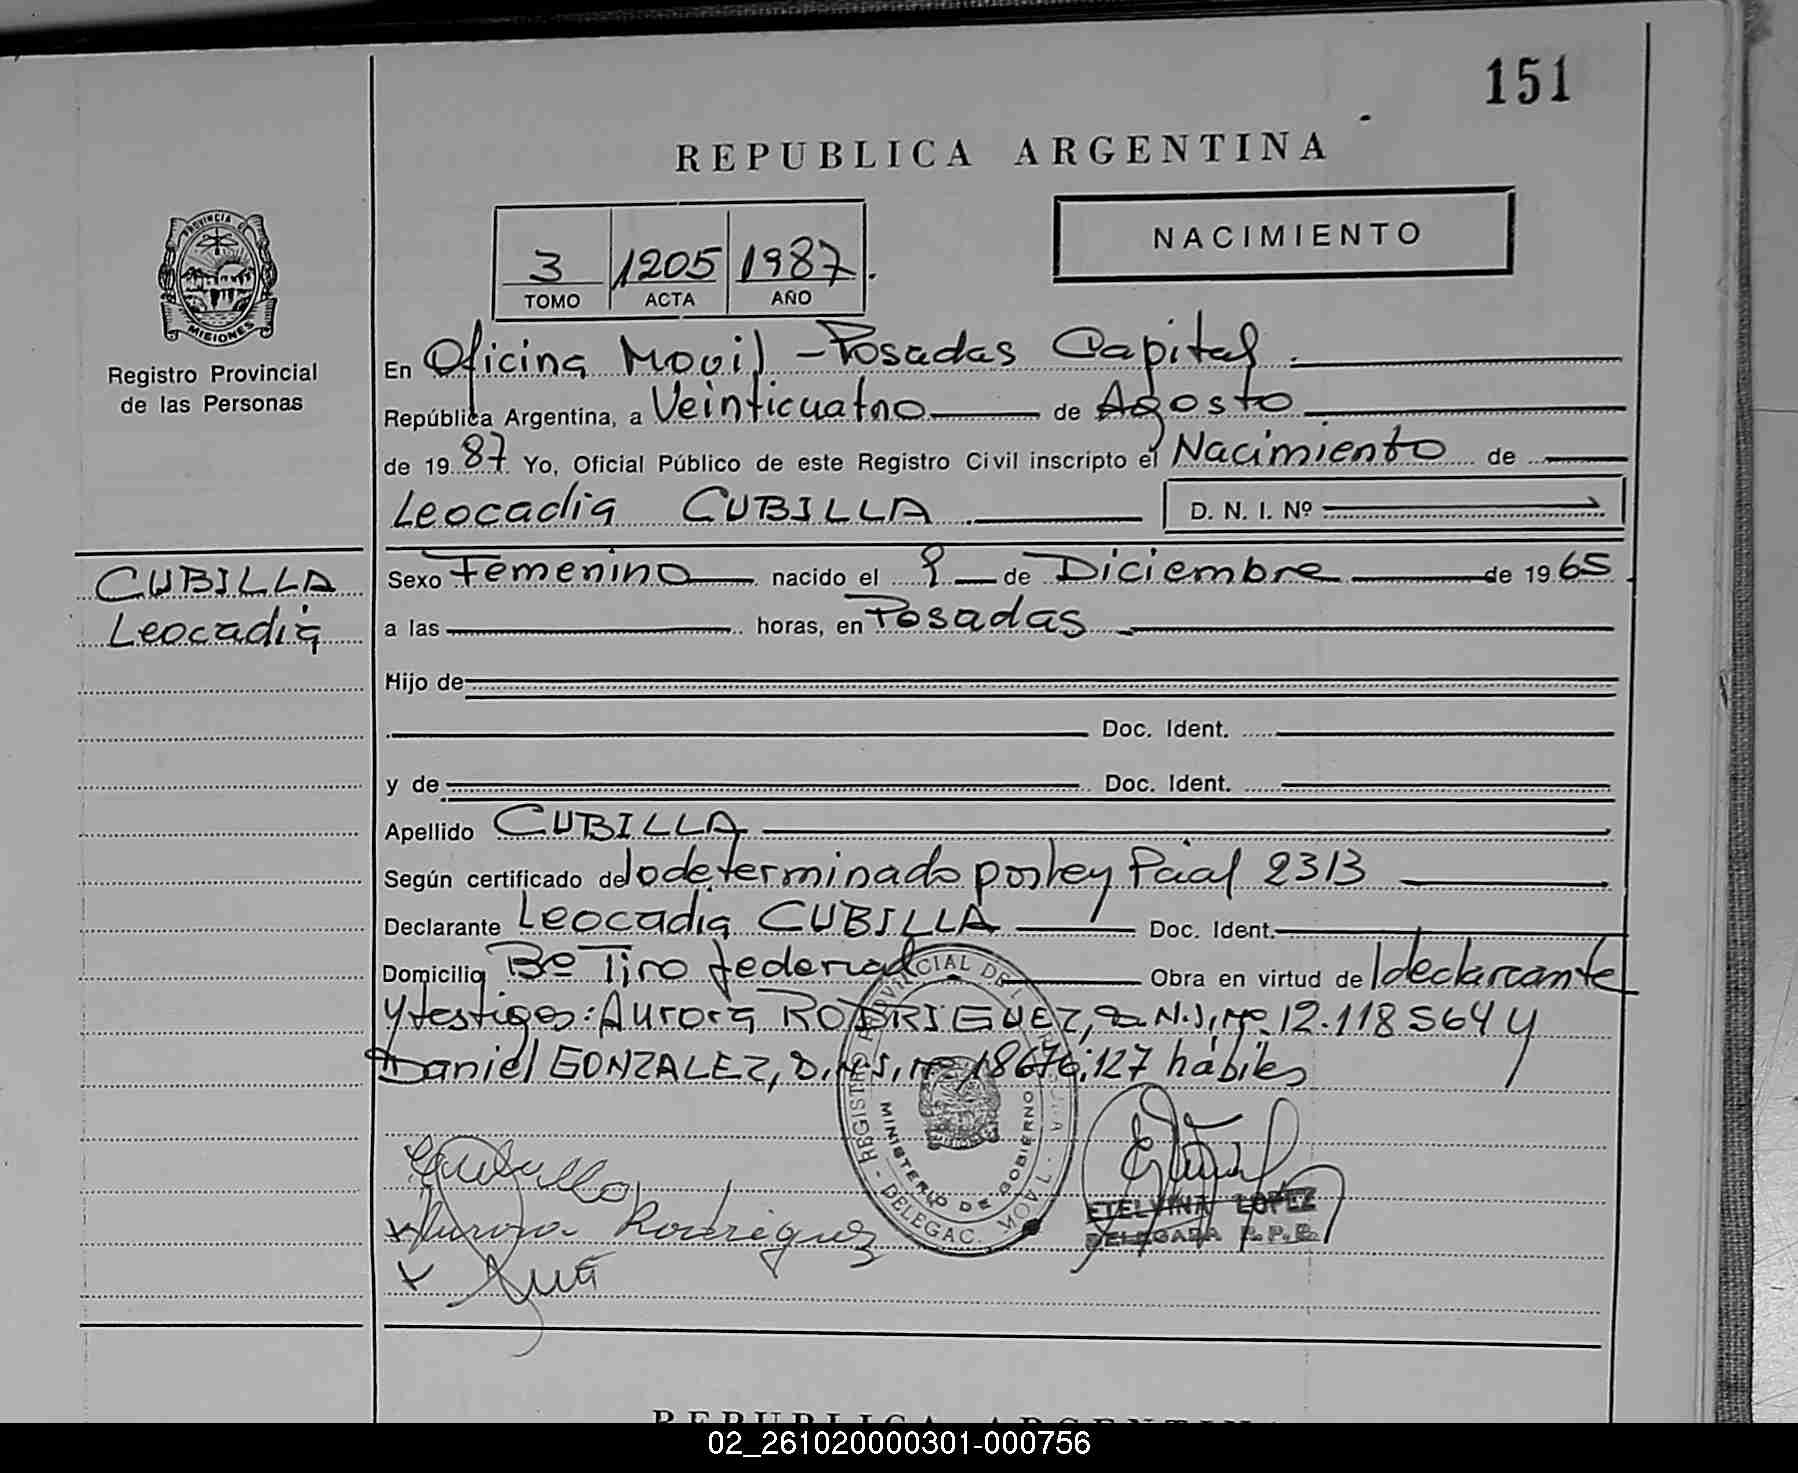 151
REPUBLICA ARGENTINA
NACIMIENTO
3 1205 1987
TOMO ACTA AÑO
PROVINCIA DE
MISIONES
Registro Provincial
de las Personas
En Oficina Movil - Posadas Capital
República Argentina, a Veinticuatro de Agosto
de 1987 Yo, Oficial Público de este Registro Civil inscripto el Nacimiento de
Leocadia CUBILLA D. N. I. Nº
CUBILLA
Leocadia
Sexo Femenino nacido el 9 de Diciembre de 1965
a las horas, en Posadas
Hijo de
Doc. Ident.
y de Doc. Ident.
Apellido CUBILLA
Según certificado de lo determinado por ley Pcial 2313
Declarante Leocadia CUBILLA Doc. Ident.
Domicilio Bº Tiro federal Obra en virtud de l declarante
y testigos: Aurora RODRIGUEZ, D.N.I. nº 12.118564 y
Daniel GONZALEZ, D.N.I, nº 18676.127 hábiles
REGISTRO PROVINCIAL DE L
MINISTERIO DE GOBIERNO
DELEGAC. MOVIL
Aurora Rodriguez
ETELVINA LOPEZ
DELEGADA R.P.P.
REPUBLICA ARGENTINA
02_261020000301-000756